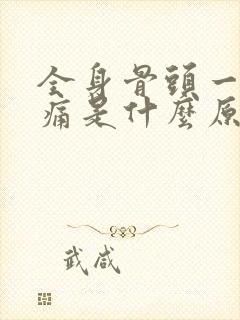 全身骨頭一
痛是什麼原
武咸